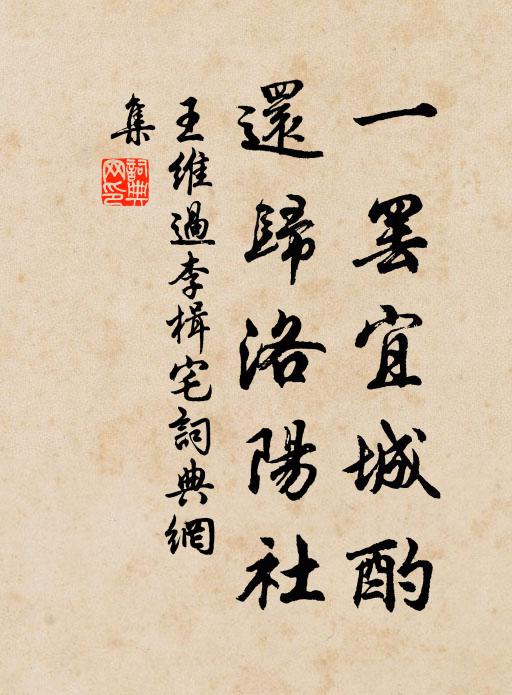 一罢宜城酌
還歸洛陽社
王維過李楫宅詞典網
集
詞典
网印